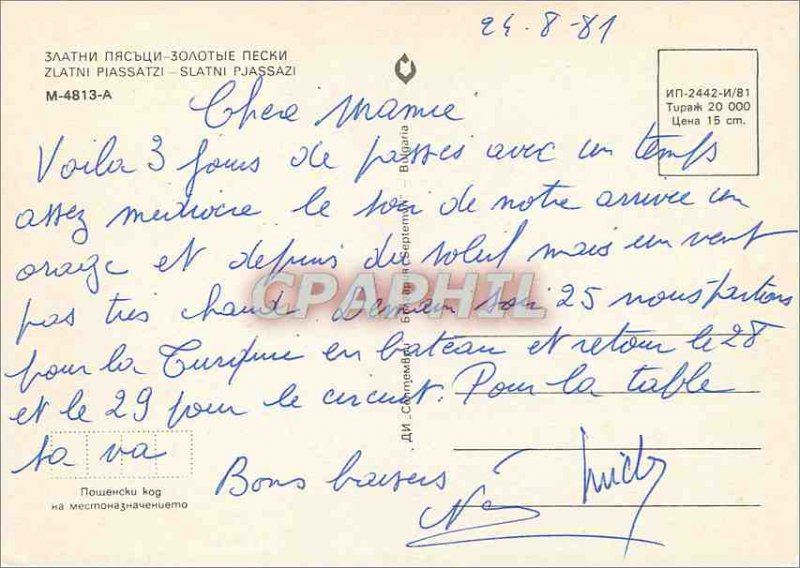 24-8-81
ЗЛАТНИ ПЯСЪЦИ–ЗОЛОТЫЕ ПЕСКИ
ZLATNI PIASSATZI – SLATNI PJASSAZI
М-4813-А
ИП-2442-И/81
Тираж 20 000
Цена 15 ст.
Chere Mamie
Voila 3 jours de passés avec un temps
assez mediocre le soir de notre arrivee un
orage et depuis du soleil mais un vent
pas très chaud Demain soir 25 nous partions
pour la Turquie en bateau et retour le 28
et le 29 pour le circuit. Pour la table
sa va
Bons baisers
ДИ „Септември“ България „Septemvri“ – Bulgaria
CPAPHIL
Пощенски код
на местоназначението